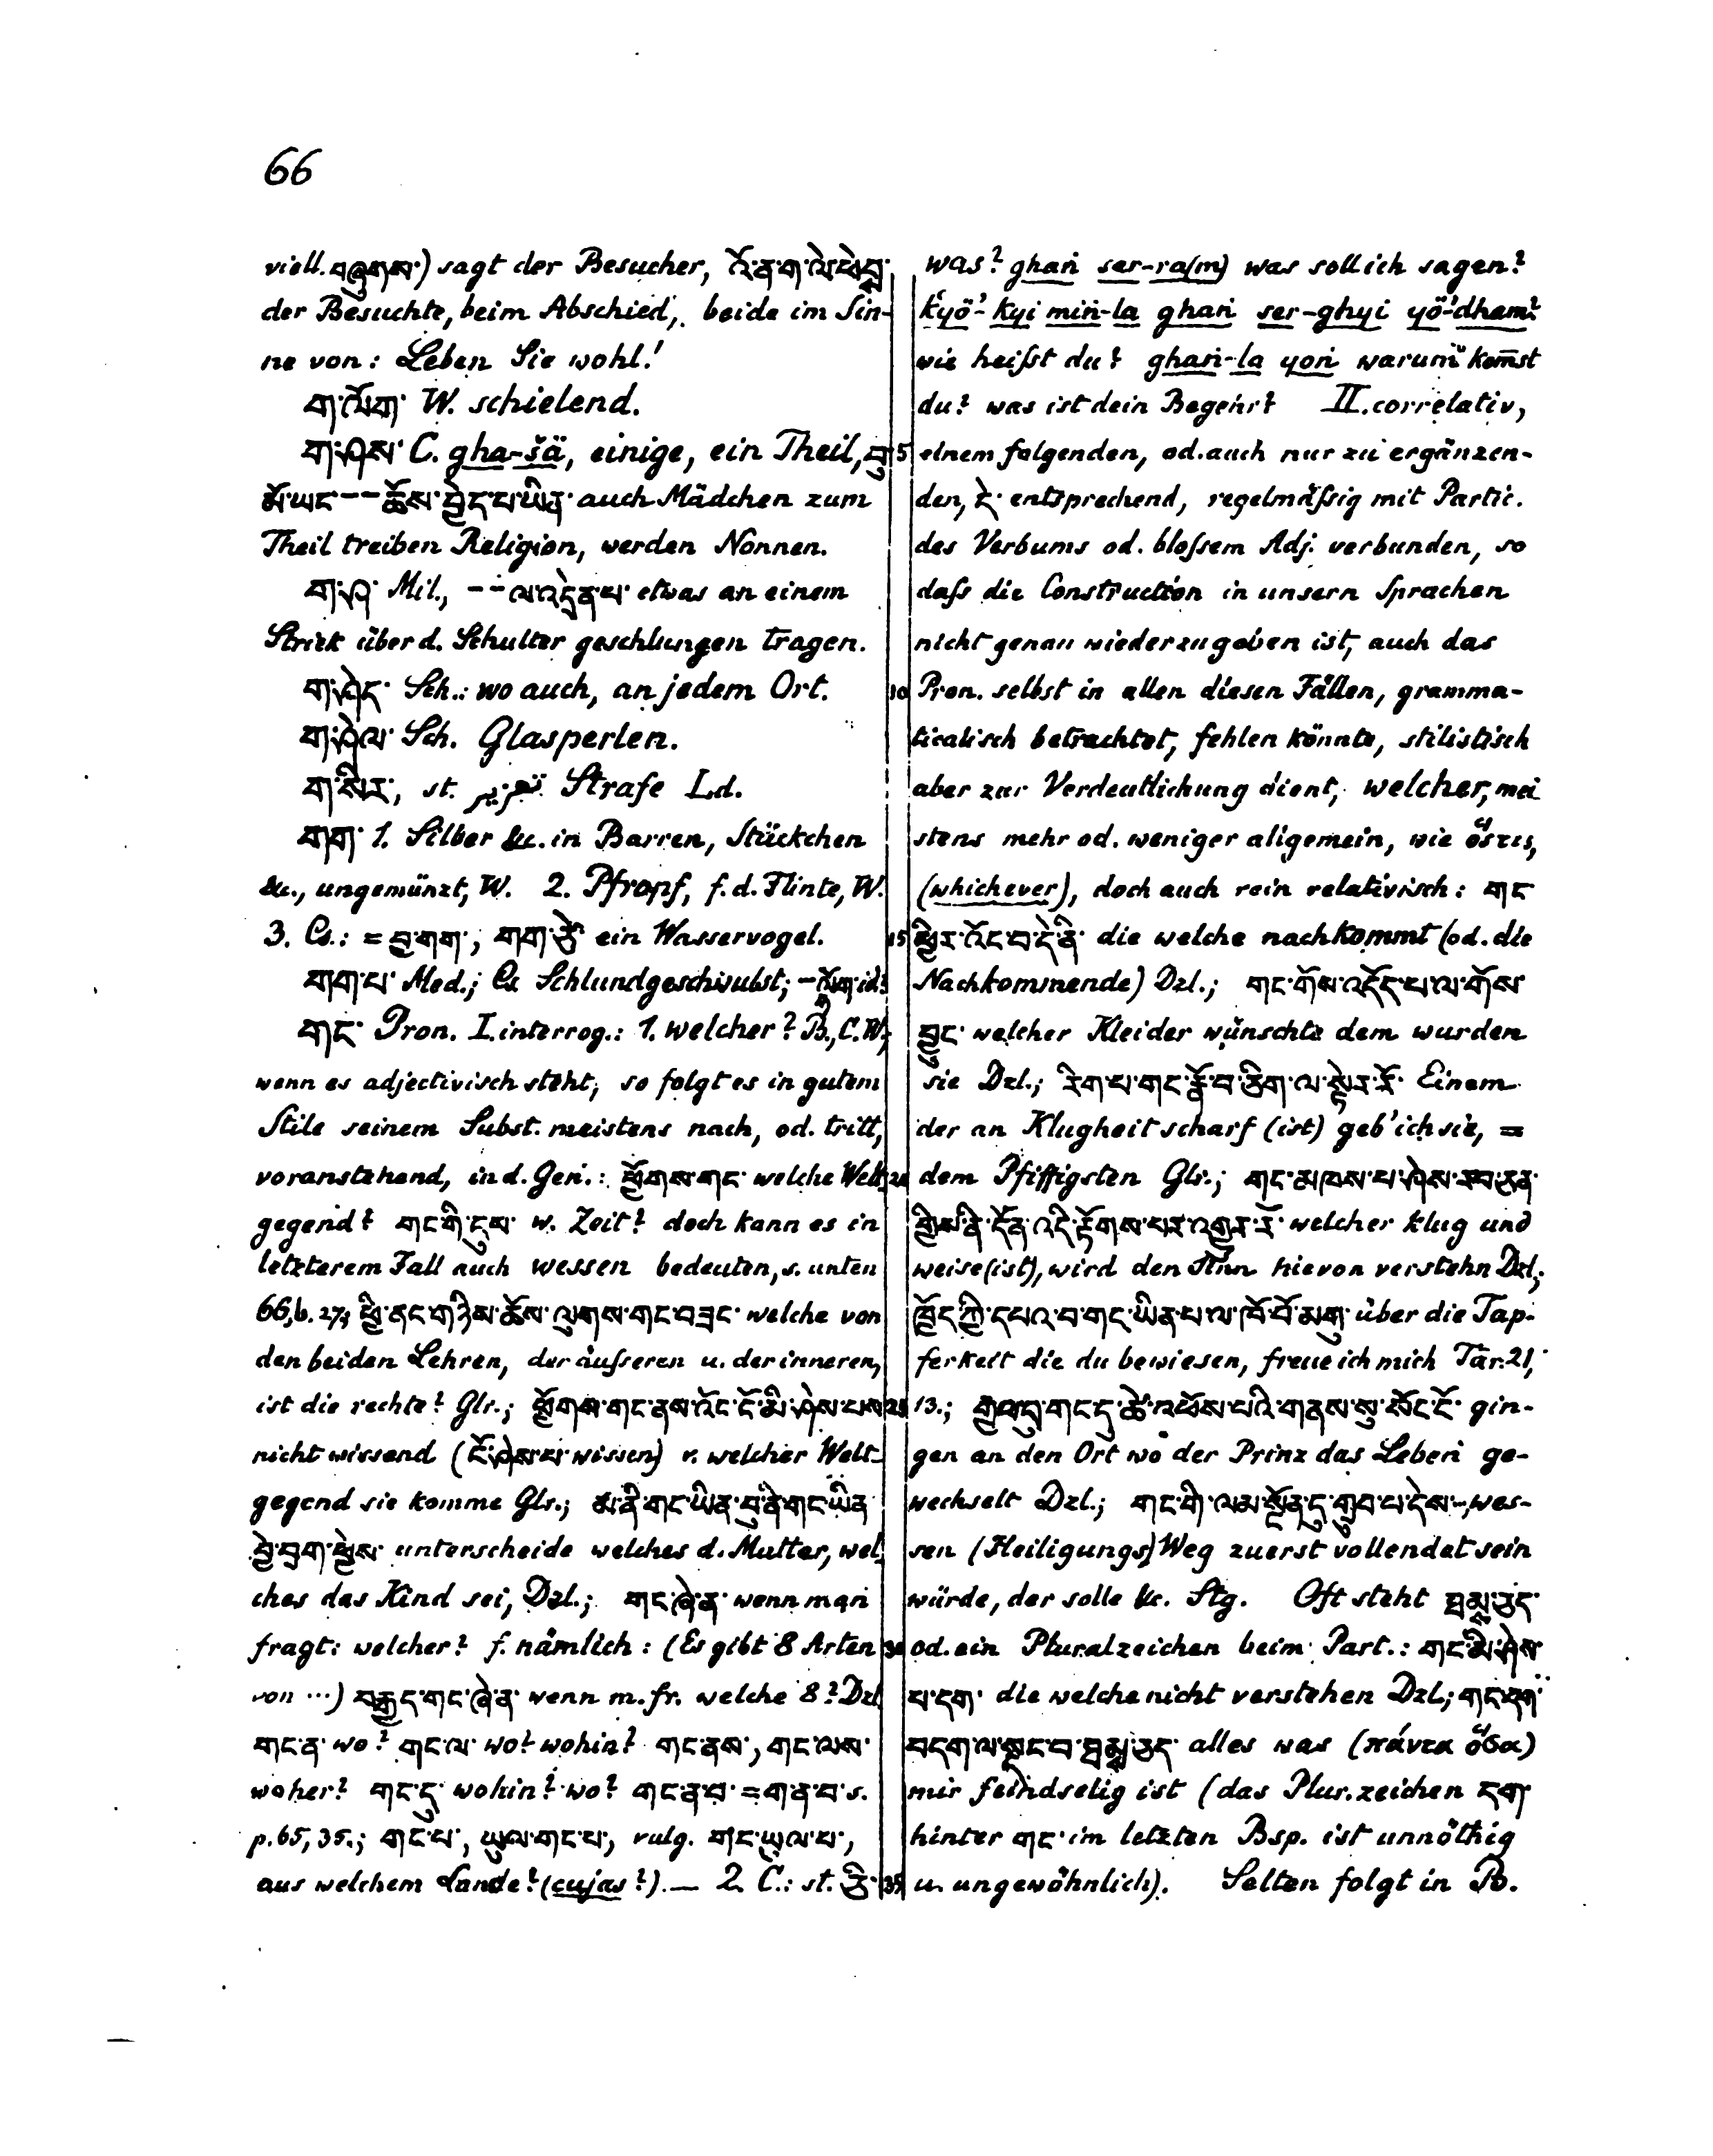 66
viell. བཞུགས་) sagt der Besucher, འོ་ན་ག་ལེ་ཕེབ།
der Besuchte, beim Abschied, beide im Sin-
ne von: Leben Sie wohl!
ག་ལོག་ W. schielend.
ག་ཤས་ C. gha-šä, einige, ein Theil, བུ་
མོ་ཡང་ -- ཆོས་བྱེད་པ་ཡིན་ auch Mädchen zum
Theil treiben Religion, werden Nonnen.
ག་ཤ་ Mil., -- ལ་འདྲེན་པ་ etwas an einem
Strick über d. Schulter geschlungen tragen.
ག་ཤེད་ Sch.: wo auch, an jedem Ort.
ག་ཤེལ་ Sch. Glasperlen.
ག་སིར་, st. Strafe Ld.
གག་ 1. Silber &c. in Barren, Stückchen
&c., ungemünzt, W. 2. Pfropf, f. d. Flinte, W.
3. Cs.: = བྱ་གག་, གག་ཙེ་ ein Wasservogel.
གག་པ་ Med.; Cs. Schlundgeschwulst; - ལྷོག་ id.
གང་ Pron. I. interrog.: 1. welcher? B., C. W.;
wenn es adjectivisch steht, so folgt es in gutem
Stile seinem Subst. meistens nach, od. tritt,
voranstehend, in d. Gen.: ཕྱོགས་གང་ welche Welt-
gegend? གང་གི་དུས་ w. Zeit? doch kann es in
letzterem Fall auch wessen bedeuten, s. unten
66, b. 27; ཕྱི་ནང་གཉིས་ཆོས་ལུགས་གང་བཟང་ welche von
den beiden Lehren, der äusseren u. der inneren,
ist die rechte? Glr.; ཕྱོགས་གང་ནས་འོང་ངོ་མི་ཤེས་པས་
nicht wissend (ངོ་ཤེས་པ་ wissen) v. welcher Welt-
gegend sie komme Glr.; མ་ནི་གང་ཡིན་བུ་ནི་གང་ཡིན་
བྱེ་བྲག་ཕྱེས་ unterscheide welches d. Mutter, wel-
ches das Kind sei, Dzl.; གང་ཞེ་ན་ wenn man
fragt: welcher? f. nämlich: (Es gibt 8 Arten
von ...) བརྒྱད་གང་ཞེ་ན་ wenn m. fr. welche 8? Dzl
གང་ན་ wo? གང་ལ་ wo? wohin? གང་ནས་, གང་ལས་
woher? གང་དུ་ wohin? wo? གང་ན་བ་ = ག་ན་བ་ s.
p. 65, 35.; གང་པ་, ཡུལ་གང་པ་, vulg. གང་ཡུལ་པ་,
aus welchem Lande? (cujas?). — 2. C.: st. ཅི་
was? ghaṅ ser-ra(m) was soll ich sagen?
k̔yö'-kyi miṅ-la ghaṅ ser-ghyi yö'-dham?
wie heisst du? ghaṅ-la yoṅ warum kom̄st
du? was ist dein Begehr? II. correlativ,
5 einem folgenden, od. auch nur zu ergänzen-
den, དེ་ entsprechend, regelmässig mit Partic.
des Verbums od. blossem Adj. verbunden, so
dass die Construction in unsern Sprachen
nicht genau wiederzugeben ist, auch das
10 Pron. selbst in allen diesen Fällen, gramma-
ticalisch betrachtet, fehlen könnte, stilistisch
aber zur Verdeutlichung dient, welcher, mei
stens mehr od. weniger allgemein, wie ὅστις,
(whichever), doch auch rein relativisch: གང་
15 ཕྱིར་འོང་བ་དེ་ནི་ die welche nachkommt (od. die
Nachkommende) Dzl.; གང་གོས་འདོད་པ་ལ་གོས་
བྱུང་ welcher Kleider wünschte dem wurden
sie Dzl.; རིག་པ་གང་རྣོ་བ་ཅིག་ལ་སྟེར་རོ་ Einem
der an Klugheit scharf (ist) geb' ich sie, =
20 dem Pfiffigsten Glr.; གང་མཁས་པ་ཤེས་རབ་ཅན་
གྱིས་ནི་དོན་འདི་རྟོགས་པར་འགྱུར་རོ་ welcher klug und
weise (ist), wird den Sinn hievon verstehn Dzl.;
ཁྱོད་ཀྱི་དཔའ་བ་གང་ཡིན་པ་ལ་ཁོ་བོ་མགུ་ über die Tap-
ferkeit die du bewiesen, freue ich mich Tār. 21,
25 13.; རྒྱལ་བུ་གང་དུ་ཚེ་འཕོས་པའི་གནས་སུ་སོང་ངོ་ gin-
gen an den Ort wo der Prinz das Leben ge-
wechselt Dzl.; གང་གི་ལམ་སྔོན་དུ་གྲུབ་པ་དེས་ --, wes-
sen (Heiligungs) Weg zuerst vollendet sein
würde, der solle &c. Stg. Oft steht ཐམས་ཅད་
30 od. ein Pluralzeichen beim Part.: གང་མི་ཤེས་
པ་དག་ die welche nicht verstehen Dzl.; གང་དག་
བདག་ལ་སྡང་བ་ཐམས་ཅད་ alles was (πάντα ὅσα)
mir feindselig ist (das Plur.zeichen དག་
hinter གང་ im letzten Bsp. ist unnöthig
35 u. ungewöhnlich). Selten folgt in B.